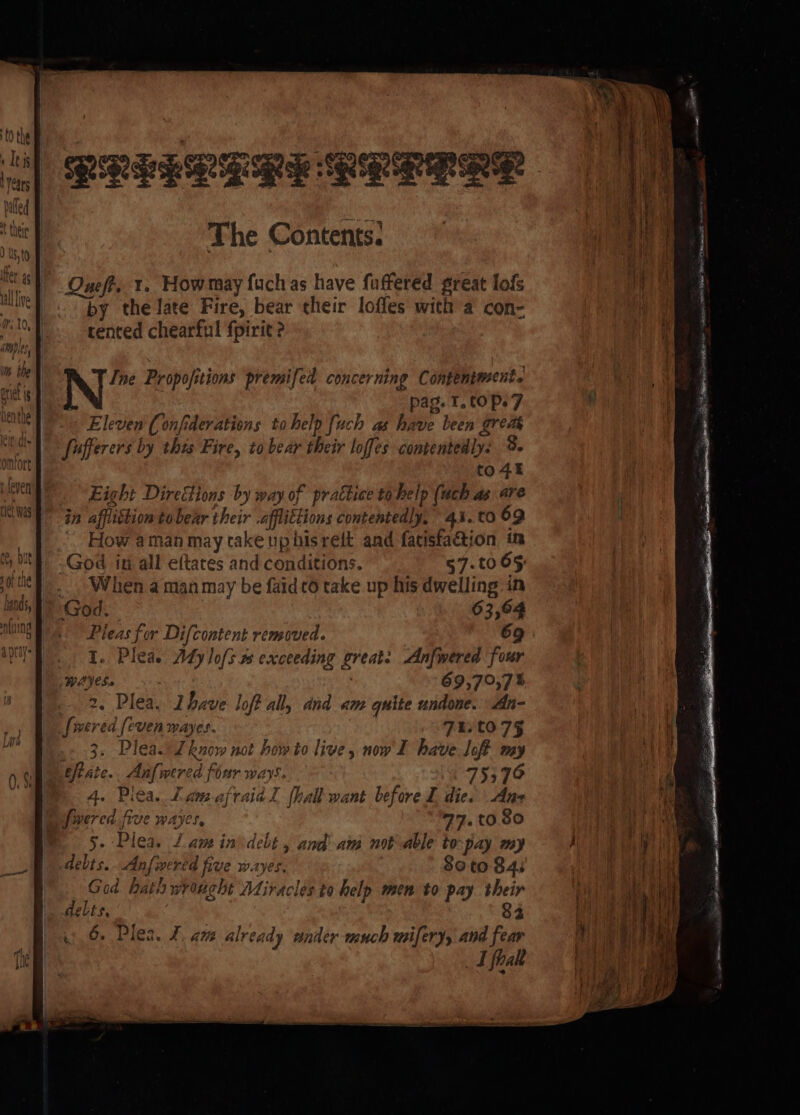 The Contents.
Quest. 1. How may such as have suffered great loss
by the late Fire, bear their losses with a con-
tented chearful spirit?
NIne Propositions premised concerning Contentment.
pag. 1. to p. 7
Eleven Considerations to help such as have been great
sufferers by this Fire, to bear their losses contentedly: 8.
to 41
Eight Directions by way of practice to help such as are
in affliction to bear their afflictions contentedly, 41. to 69
How a man may take up his rest and satisfaction in
God in all estates and conditions. 57. to 65
When a man may be said to take up his dwelling in
God. 63,64
Pleas for Discontent removed. 69
1. Plea. My loss is exceeding great: Answered four
wayes. 69,70,71
2. Plea. I have lost all, and am quite undone. An-
swered seven wayes. 71. to 75
3. Plea. I know not how to live, now I have lost my
estate. Answered four ways. 75,76
4. Plea. I am afraid I shall want before I die. An-
swered five wayes, 77. to 80
5. Plea. I am in debt, and am not able to pay my
debts. Answered five wayes. 80 to 84.
God hath wrought Miracles to help men to pay their
debts. 84
6. Plea. I am already under much misery, and fear
I shall
to the
It is
years
their
all live
to,
in the
grief is
hen the
omfort
was
but
of the
hands,
in
Lord
The